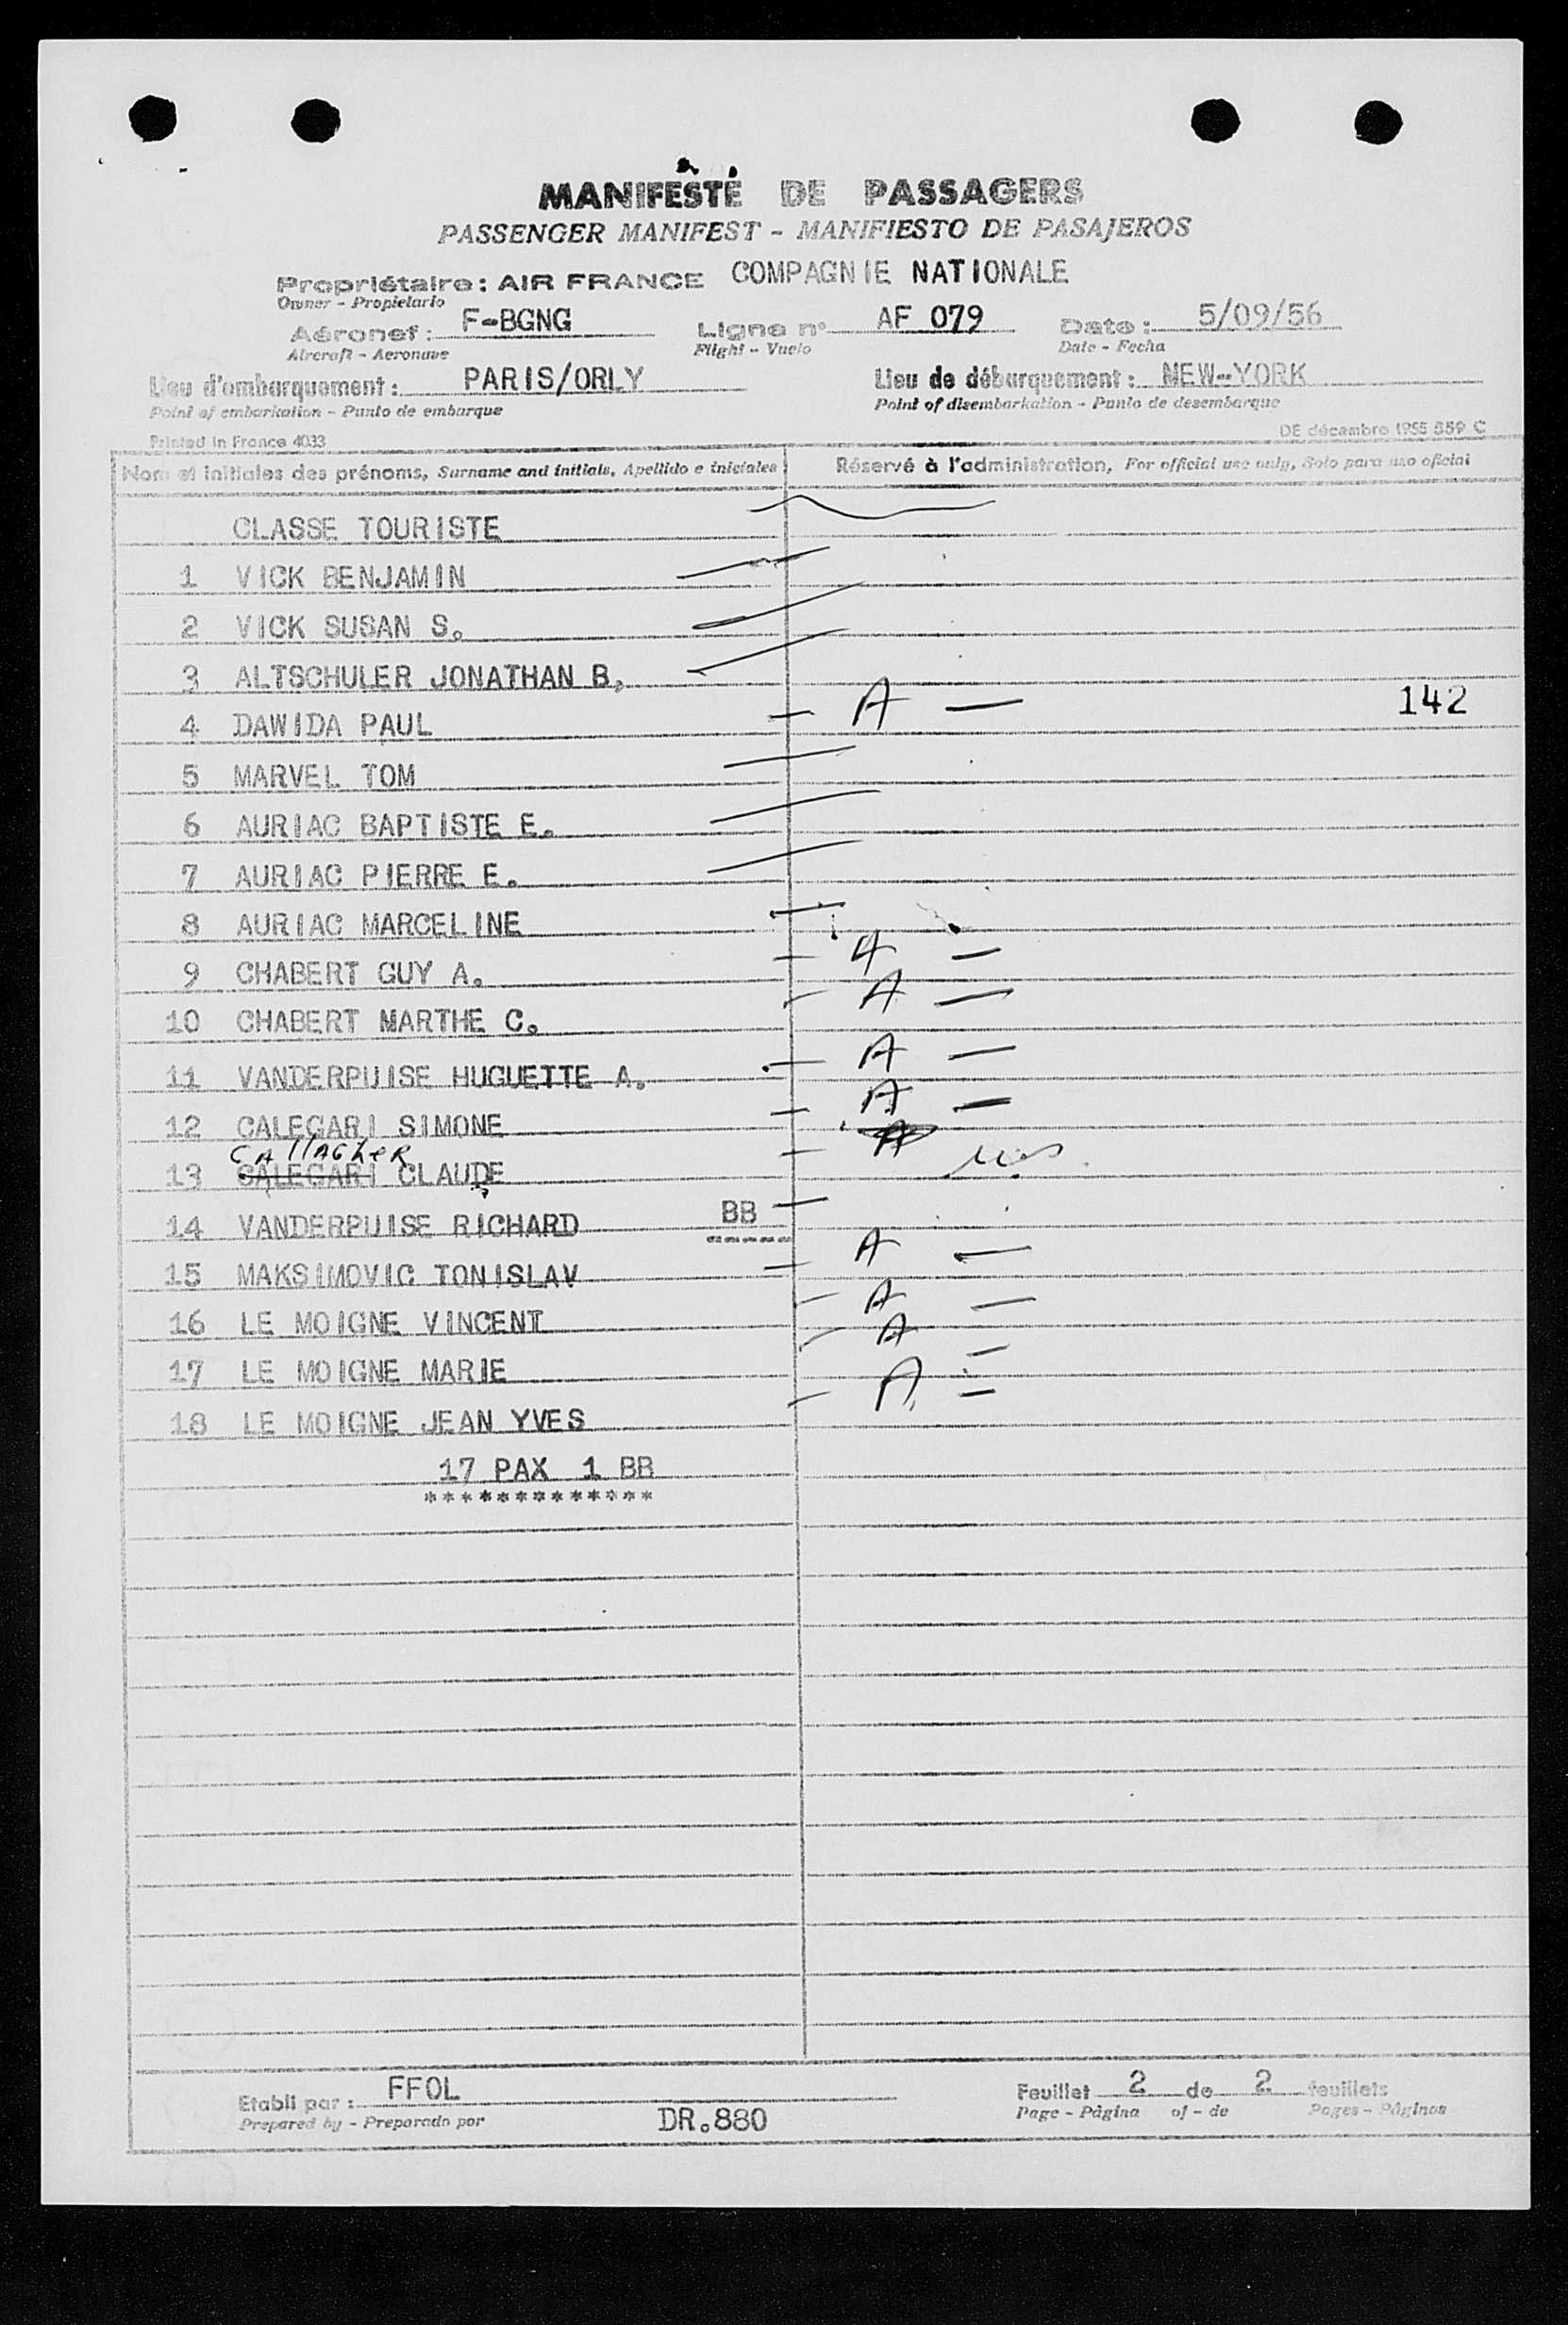 MANIFESTE DE PASSAGERS
PASSENGER MANIFEST - MANIFIESTO DE PASAJEROS
Propriétaire : AIR FRANCE COMPAGNIE NATIONALE
Owner - Propietario
Aéronef : F-BGNG Ligne n° AF 079 Date : 5/09/56
Aircraft - Aeronave Flight - Vuelo Date - Fecha
Lieu d'embarquement : PARIS/ORLY Lieu de débarquement : NEW-YORK
Point of embarkation - Punto de embarque Point of disembarkation - Punto de desembarque
Printed in France 4033 DE décembre 1955 559 C
Nom et initiales des prénoms, Surname and initials, Apellido e iniciales Réservé à l'administration, For official use only, Solo para uso oficial
CLASSE TOURISTE
1 VICK BENJAMIN
2 VICK SUSAN S.
3 ALTSCHULER JONATHAN B.
4 DAWIDA PAUL A — 142
5 MARVEL TOM
6 AURIAC BAPTISTE E.
7 AURIAC PIERRE E.
8 AURIAC MARCELINE
9 CHABERT GUY A. A —
10 CHABERT MARTHE C. A —
11 VANDERPUISE HUGUETTE A. A —
12 CALEGARI SIMONE A —
CAllAGheR
13 CALEGARI CLAUDE A
14 VANDERPUISE RICHARD BB
15 MAKSIMOVIC TONISLAV A —
16 LE MOIGNE VINCENT A —
17 LE MOIGNE MARIE A —
18 LE MOIGNE JEAN YVES A —
17 PAX 1 BB
*************
Etabli par : FFOL Feuillet 2 de 2 feuillets
Prepared by - Preparado por DR.880 Page - Página of - de Pages - Páginas